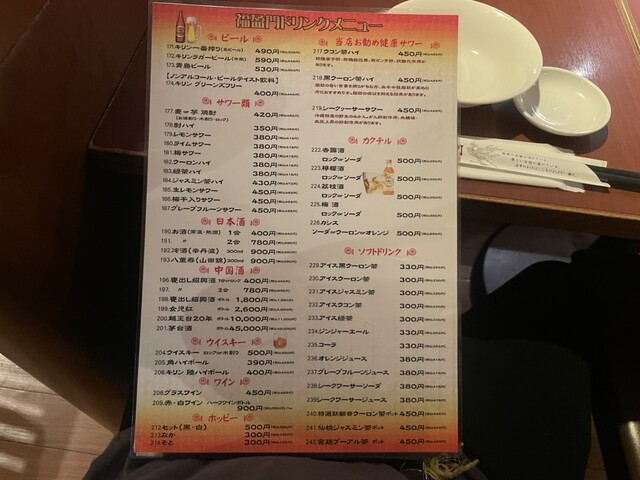 福盈門ドリンクメニュー
ビール
171.キリン一番搾り(生ビール) 490円
172.キリンラガービール(中瓶) 590円
173.青島ビール 530円
[ノンアルコール・ビールテイスト飲料]
174.キリン グリーンズフリー
400円
サワー類
177.麦or芋 焼酎 420円
(お湯割り・水割り・ロック)
178.酎ハイ 350円
179.レモンサワー 380円
180.ライムサワー 380円
181.梅サワー 380円
182.ウーロンハイ 380円
183.緑茶ハイ 380円
184.ジャスミン茶ハイ 430円
185.生レモンサワー 450円
186.梅干入りサワー 450円
187.グレープフルーツサワー 450円
日本酒
190.お酒(常温・熱燗) 1合 400円
191. 〃 2合 780円
192.冷酒(辛丹波) 300ml 900円
193.八重寿(山田錦) 300ml 900円
中国酒
196.甕出し紹興酒 400円
197. 〃 2合 780円
198.甕出し紹興酒 ボトル 1,800円
199.女児紅 ボトル 2,600円
200.越王台20年 ボトル 10,000円
201.茅台酒 ボトル 45,000円
ウイスキー
204.ウイスキー ロックor水割り 500円
205.角ハイボール 390円
206.キリン 陸ハイボール 400円
ワイン
208.グラスワイン 450円
209.赤・白ワイン ハーフワインボトル
900円
ホッピー
212.セット(黒・白) 500円
213.なか 300円
214.そと 300円
当店お勧め健康サワー
217.ウコン茶ハイ 450円
218.黒ウーロン茶ハイ 450円
219.シークァーサーサワー 450円
カクテル
222.杏露酒
ロックorソーダ 500円
223.檸檬酒
ロックorソーダ 500円
224.茘枝酒
ロックorソーダ 500円
225.梅酒
ロックorソーダ 500円
226.カシス
ソーダorウーロンorオレンジ 500円
ソフトドリンク
229.アイス黒ウーロン茶 330円
230.アイスウーロン茶 330円
231.アイスジャスミン茶 380円
232.アイスウコン茶 380円
233.アイス緑茶 380円
234.ジンジャーエール 330円
235.コーラ 330円
236.オレンジジュース 380円
237.グレープフルーツジュース 380円
238.シークァーサーソーダ 380円
239.シークァーサージュース 380円
240.特選鉄観音ウーロン茶 ポット 450円
241.仙桃ジャスミン茶 ポット 450円
242.宮廷プーアル茶 ポット 450円